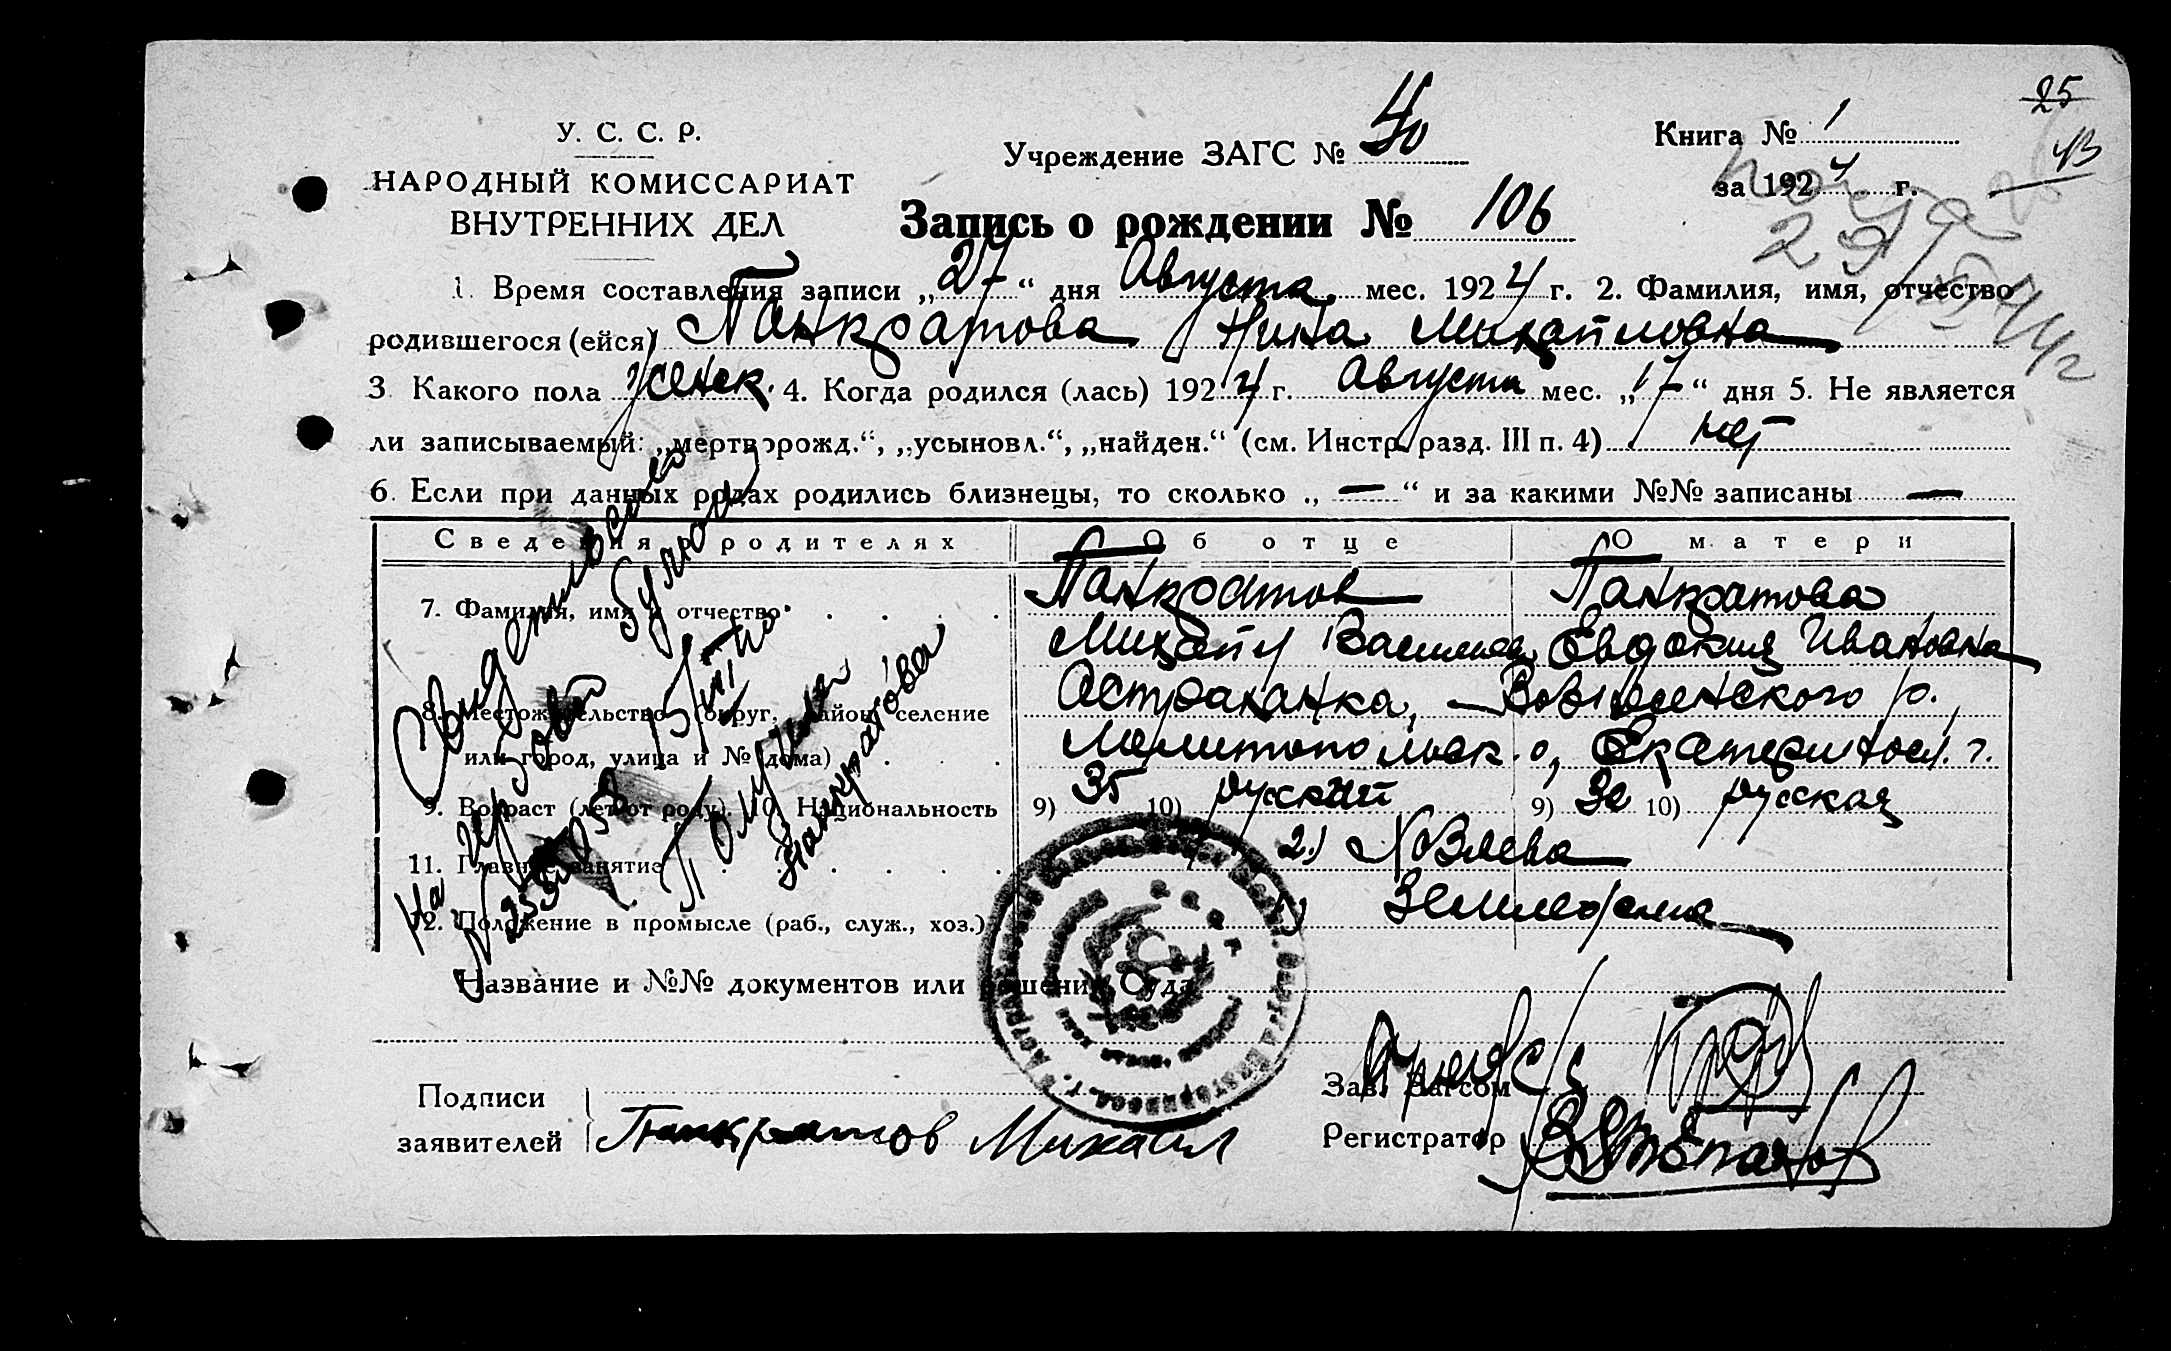 25
У. С. С. Р.
Учреждение ЗАГС № 40
Книга № 1
43
НАРОДНЫЙ КОМИССАРИАТ
за 1924 г.
ВНУТРЕННИХ ДЕЛ
Запись о рождении № 106
29
44г
1. Время составления записи „27“ дня Августа мес. 1924 г. 2. Фамилия, имя, отчество
родившегося (ейся) Панкратова Нина Михайловна
3. Какого пола женск. 4. Когда родился (лась) 1924 г. Августа мес. „17“ дня 5. Не является
ли записываемый: „мертворожд.“, „усыновл.“, „найден.“ (см. Инстр. разд. III п. 4) нет
6. Если при данных родах родились близнецы, то сколько „—“ и за какими №№ записаны —
Сведения о родителях Об отце О матери
7. Фамилия, имя и отчество Панкратов Панкратова
Михаил Васильев Евдокия Ивановна
8. Местожительство (округ, район, селение Астраханка, Вознесенского р.
или город, улица и № дома) Мелитопольск. о, Екатериносл. г.
9. Возраст (лет от роду). 10. Национальность 9) 35 10) русский 9) 32 10) русская
11. Главное занятие 2)
12. Положение в промысле (раб., служ., хоз.)
Название и №№ документов или решения Суда
Свидетельство
На
Получила
Панкратова
Подписи
заявителей Панкратов Михаил
Зав. Загсом
Регистратор Степанов